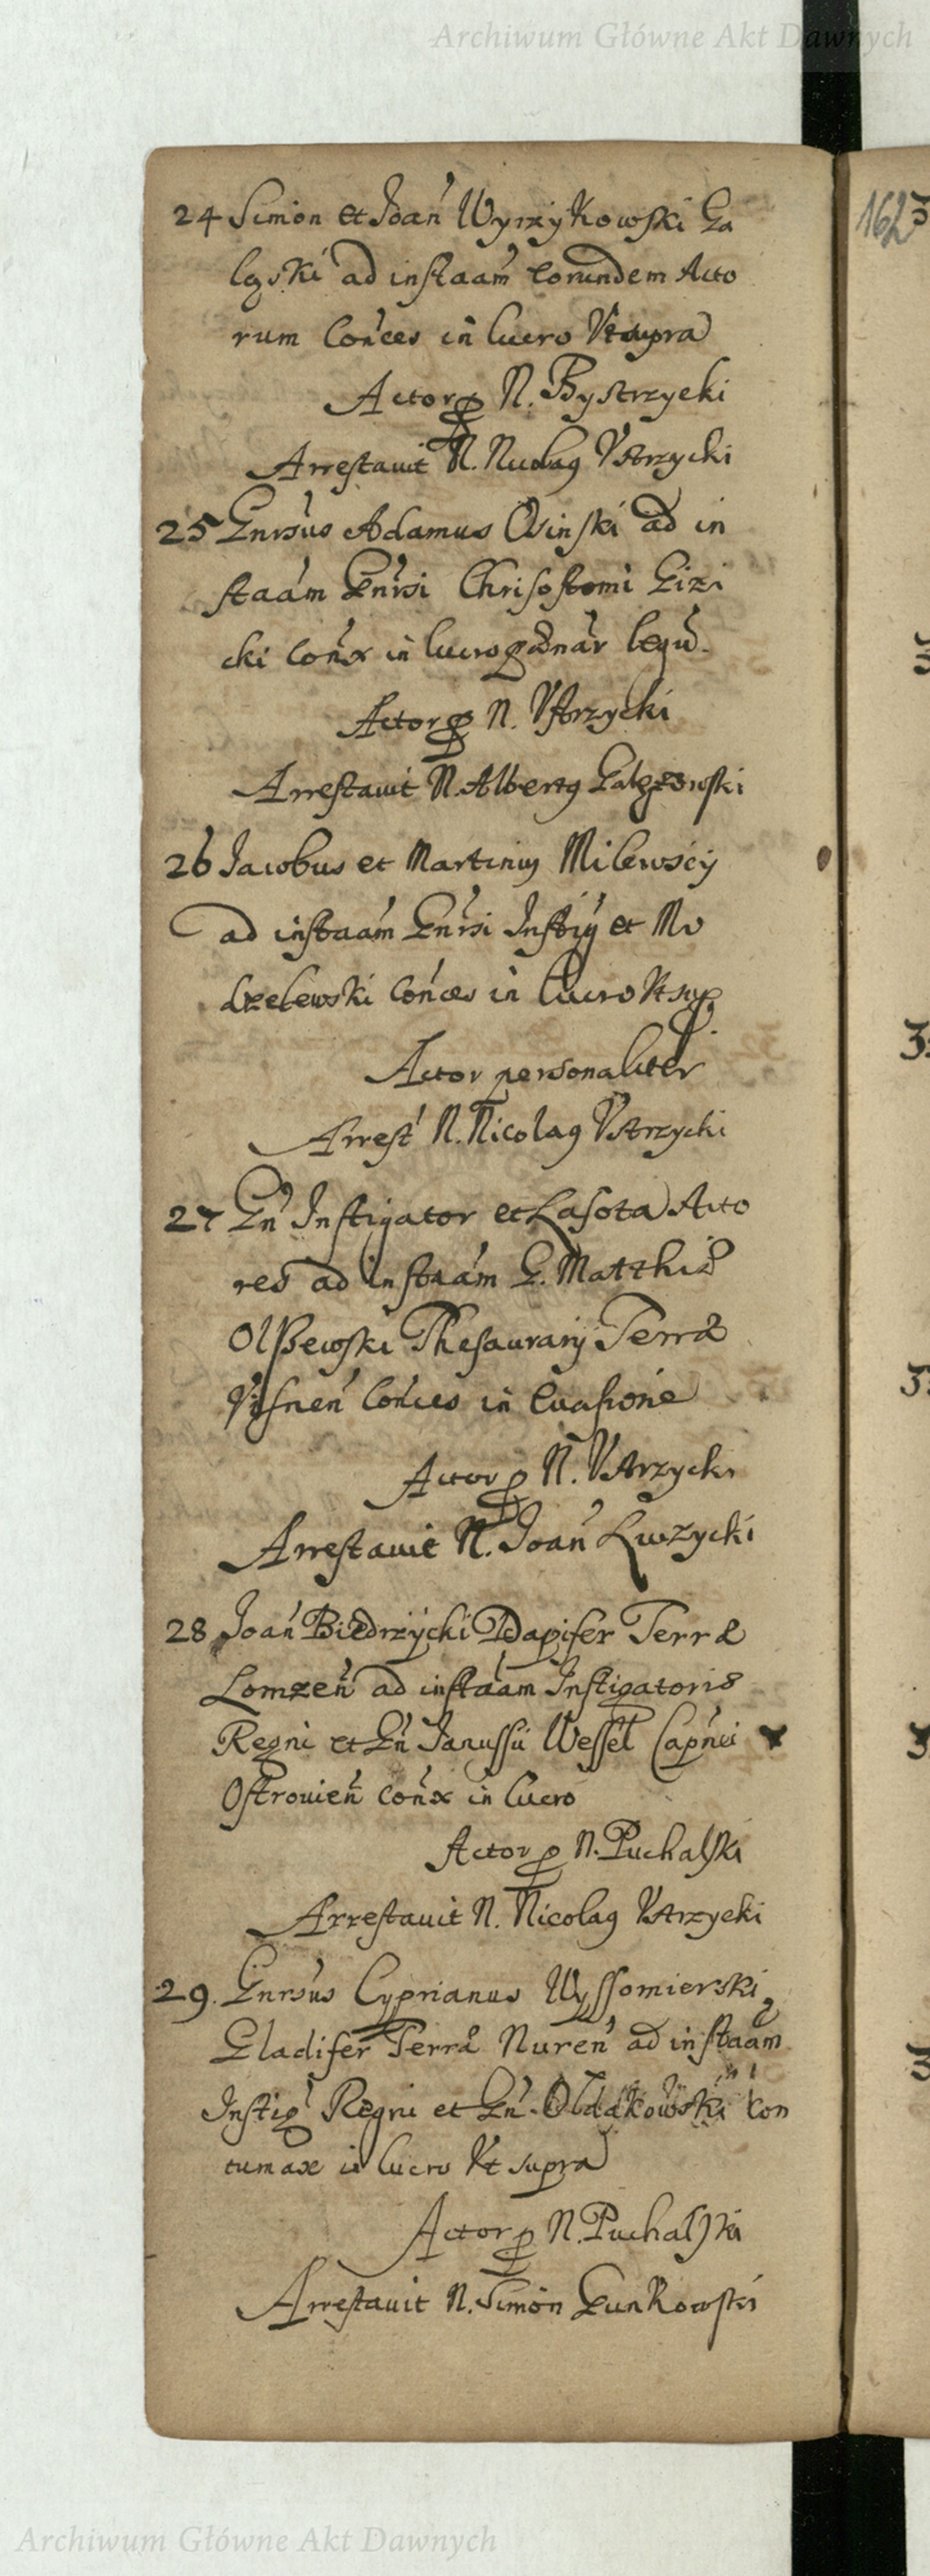 Archiwum Główne Akt Dawnych
162
24 Simon et Joań Wyrzykowski Ga
lęski ad instaam eorundem Acto
rum Conces in lucro Vtsupra
Actor p N. Bystrzycki
Arrestauit N. Nicolaq Vstrzycki
25 Gnrsus Adamus Osinski ad in
staam Gnrsi Chrisostomi Gizi
cki Conx in lucro
Actor p N. Vstrzycki
Arrestauit N. Albertq
26 Jacobus et Martinus Milewscÿ
ad instaam Gnrsi Instig et Mo
dzelewski Conces in lucro Vtsup
Actor personaliter
Arrest N. Nicolaq Vstrzycki
27 Gn Instigator et Lasota Acto
res ad instaam G. Matthiæ
Olszewski Thesaurarÿ Terræ
Visnen Conces in euasione
Actor p N. Vstrzycki
Arrestauit N. Joań
28 Joań Biedrzycki Dapifer Terræ
Lomzeń ad instaam Instigatoris
Regni et Gn Janussii Wessel Capnei
Ostrouień Conx in lucro
Actor p N. Puchalski
Arrestauit N. Nicolaq Vstrzycki
29. Gnrsus Cyprianus Wyssomierski
Gladifer Terræ Nureń ad instaam
Instig Regni et Gn. Oldakowski Con
tumax in lucro Vt supra
Actor p N. Puchalski
Arrestauit N. Simon Gunkowski
Archiwum Główne Akt Dawnych